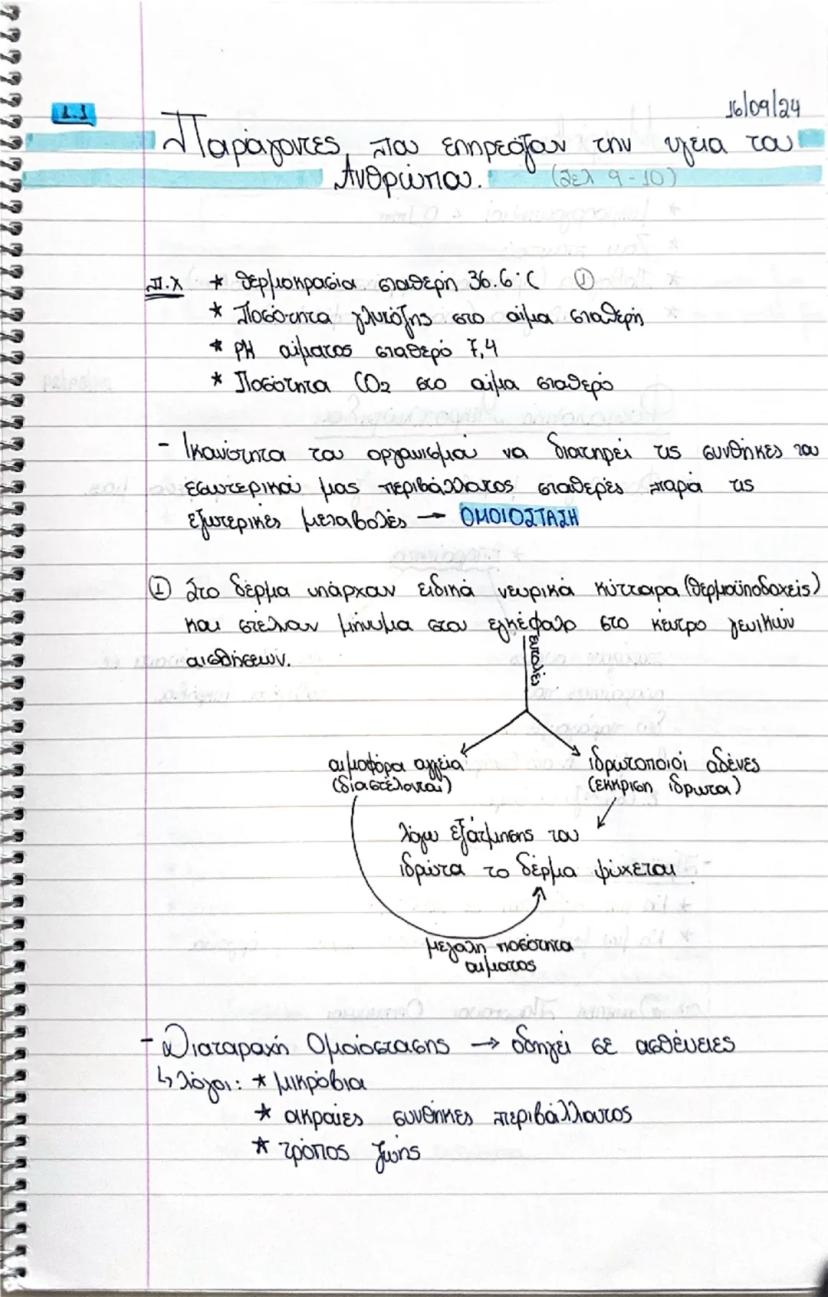 1.1
16/09/24
Παράγοντες που επηρεάζουν την υγεία του
Ανθρώπου. (Σελ 9-10)
π.χ * θερμοκρασία σταθερή 36.6°C ①
* Ποσότητα γλυκόζης στο αίμα σταθερή
* PH αίματος σταθερό 7,4
* Ποσότητα CO2 στο αίμα σταθερό
- Ικανότητα του οργανισμού να διατηρεί τις συνθήκες του
εσωτερικού μας περιβάλλοντος σταθερές παρά τις
εξωτερικές μεταβολές → ΟΜΟΙΟΣΤΑΣΗ
① Στο δέρμα υπάρχουν ειδικά νευρικά κύτταρα (θερμοϋποδοχείς)
και στέλνουν μήνυμα στον εγκέφαλο στο κέντρο γενικών
αισθήσεων.
εντολές
αιμοφόρα αγγεία
(διαστέλονται)
ιδρωτοποιοί αδένες
(έκκριση ιδρωτα)
λόγω εξάτμισης του
ιδρώτα το δέρμα ψύχεται
μεγάλη ποσότητα
αιματος
- Διαταραχή Ομοιόστασης → οδηγεί σε ασθένειες
↳ λόγοι: * μικρόβια
* ακραίες συνθήκες περιβάλλοντος
* τρόπος ζωής